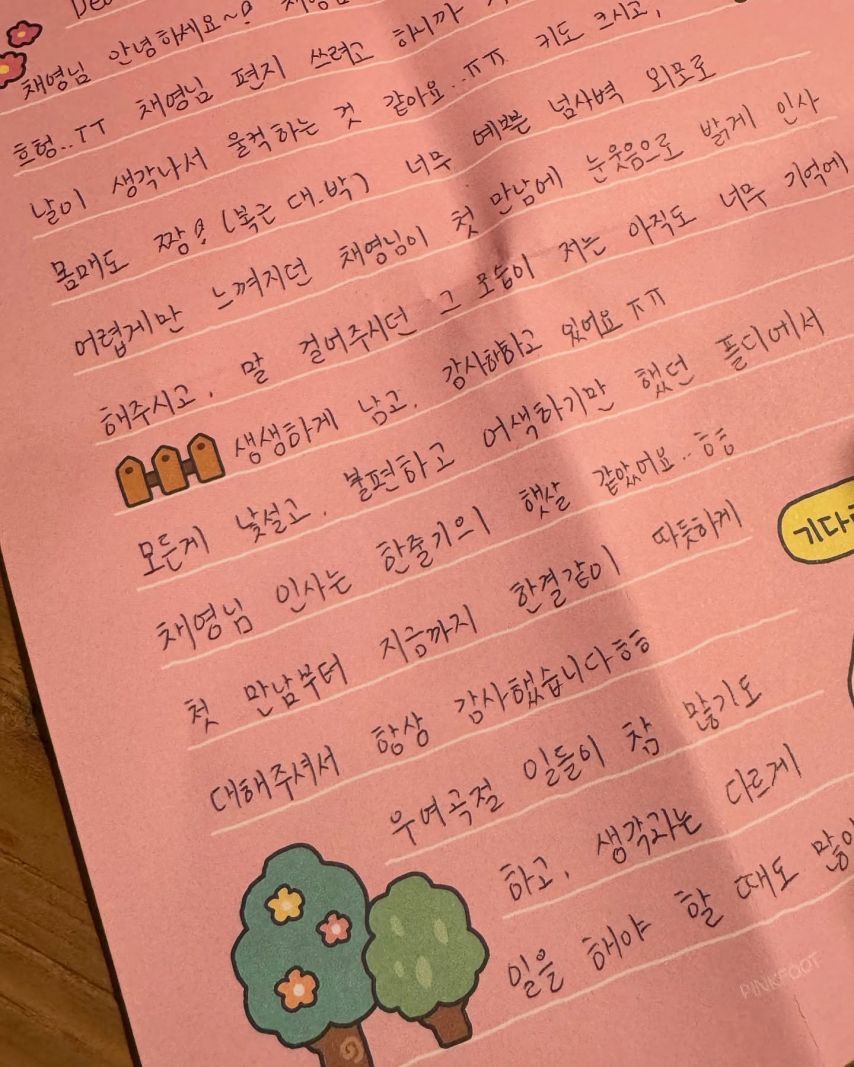 채영님 안녕하세요~♡
흐헝..ㅜㅜ 채영님 편지 쓰려고 하니까
날이 생각나서 울컥하는 것 같아요..ㅠㅠ 키도 크시고,
몸매도 짱! (복근 대.박) 너무 예쁜 넘사벽 외모로
어렵게만 느껴지던 채영님이 첫 만남에 눈웃음으로 밝게 인사
해주시고, 말 걸어주시던 그 모습이 저는 아직도 너무 기억에
생생하게 남고, 감사하하고 있어요 ㅠㅠ
모든게 낯설고, 불편하고 어색하기만 했던 플디에서
채영님 인사는 한줄기의 햇살 같았어요..ㅎㅎ
첫 만남부터 지금까지 한결같이 따듯하게
대해주셔서 항상 감사했습니다ㅎㅎ
우여곡절 일들이 참 많기도
하고, 생각과는 다르게
일을 해야 할 때도
기다
PINKFOOT